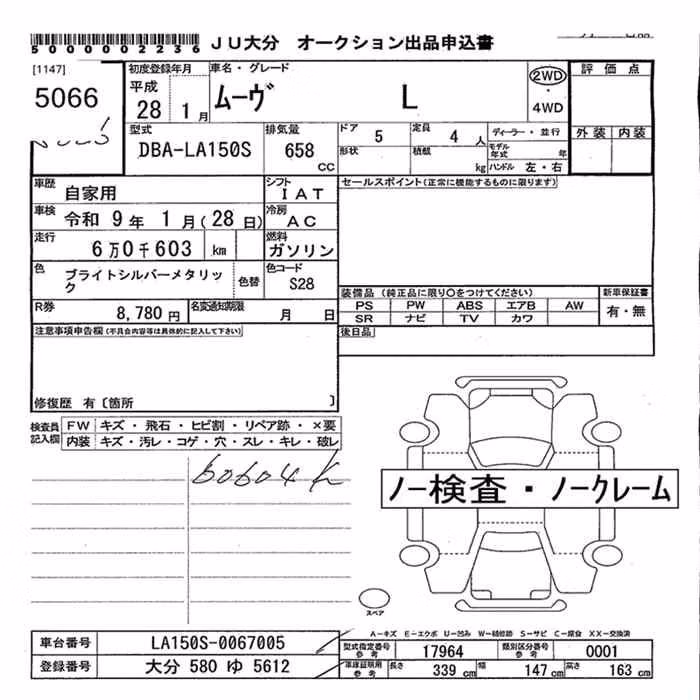 5000002236 JU大分 オークション出品申込書
[1147]
5066
初度登録年月 車名・グレード
平成 28 1月 ムーヴ L 2WD・4WD
評価点
外装 内装
型式 DBA-LA150S 排気量 658 CC
ドア 5 定員 4人 ディーラー・並行
形状 積載 kg モデル年式 年
ハンドル 左・右
車歴 自家用 シフト IAT
セールスポイント(正常に機能するものに限ります)
車検 令和 9年 1月(28日) 冷房 AC
走行 6万0千603 km 燃料 ガソリン
色 ブライトシルバーメタリック 色替 色コード S28
R券 8,780円 名変通知期限 月 日
装備品 (純正品に限り○をつけてください) 新車保証書
PS PW ABS エアB AW 有・無
SR ナビ TV カワ
後日品
注意事項申告欄(不具合内容等は具体的に記入して下さい)
修復歴 有〔箇所 〕
検査員記入欄 FW キズ・飛石・ヒビ割・リペア跡・×要
内装 キズ・汚レ・コゲ・穴・スレ・キレ・破レ
60604K
ノー検査・ノークレーム
スペア
A-キズ E-エクボ U-凹み W-補修跡 S-サビ C-腐食 XX-交換済
車台番号 LA150S-0067005
型式指定番号 参考 17964 類別区分番号 参考 0001
登録番号 大分 580 ゆ 5612
車庫証明用 参考 長さ 339 cm 幅 147 cm 高さ 163 cm